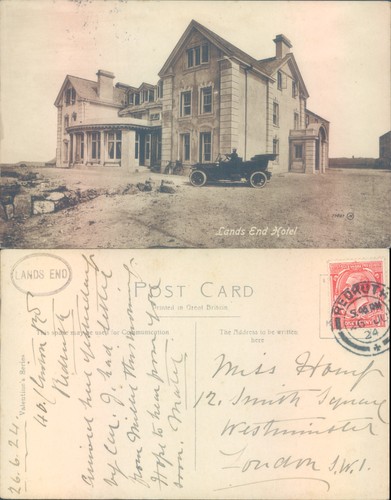 Lands End Hotel
LANDS END
POST CARD
Printed in Great Britain.
This space may be used for Communication
The Address to be written
here.
Valentine's Series
26.6.24.
Redruth
Arrived here yesterday
by car. I had a letter
from this morning
Hope to hear from you
soon. Mabel
REDRUTH
24
4
Miss
12. Smith Square
Westminster
London S.W.1.